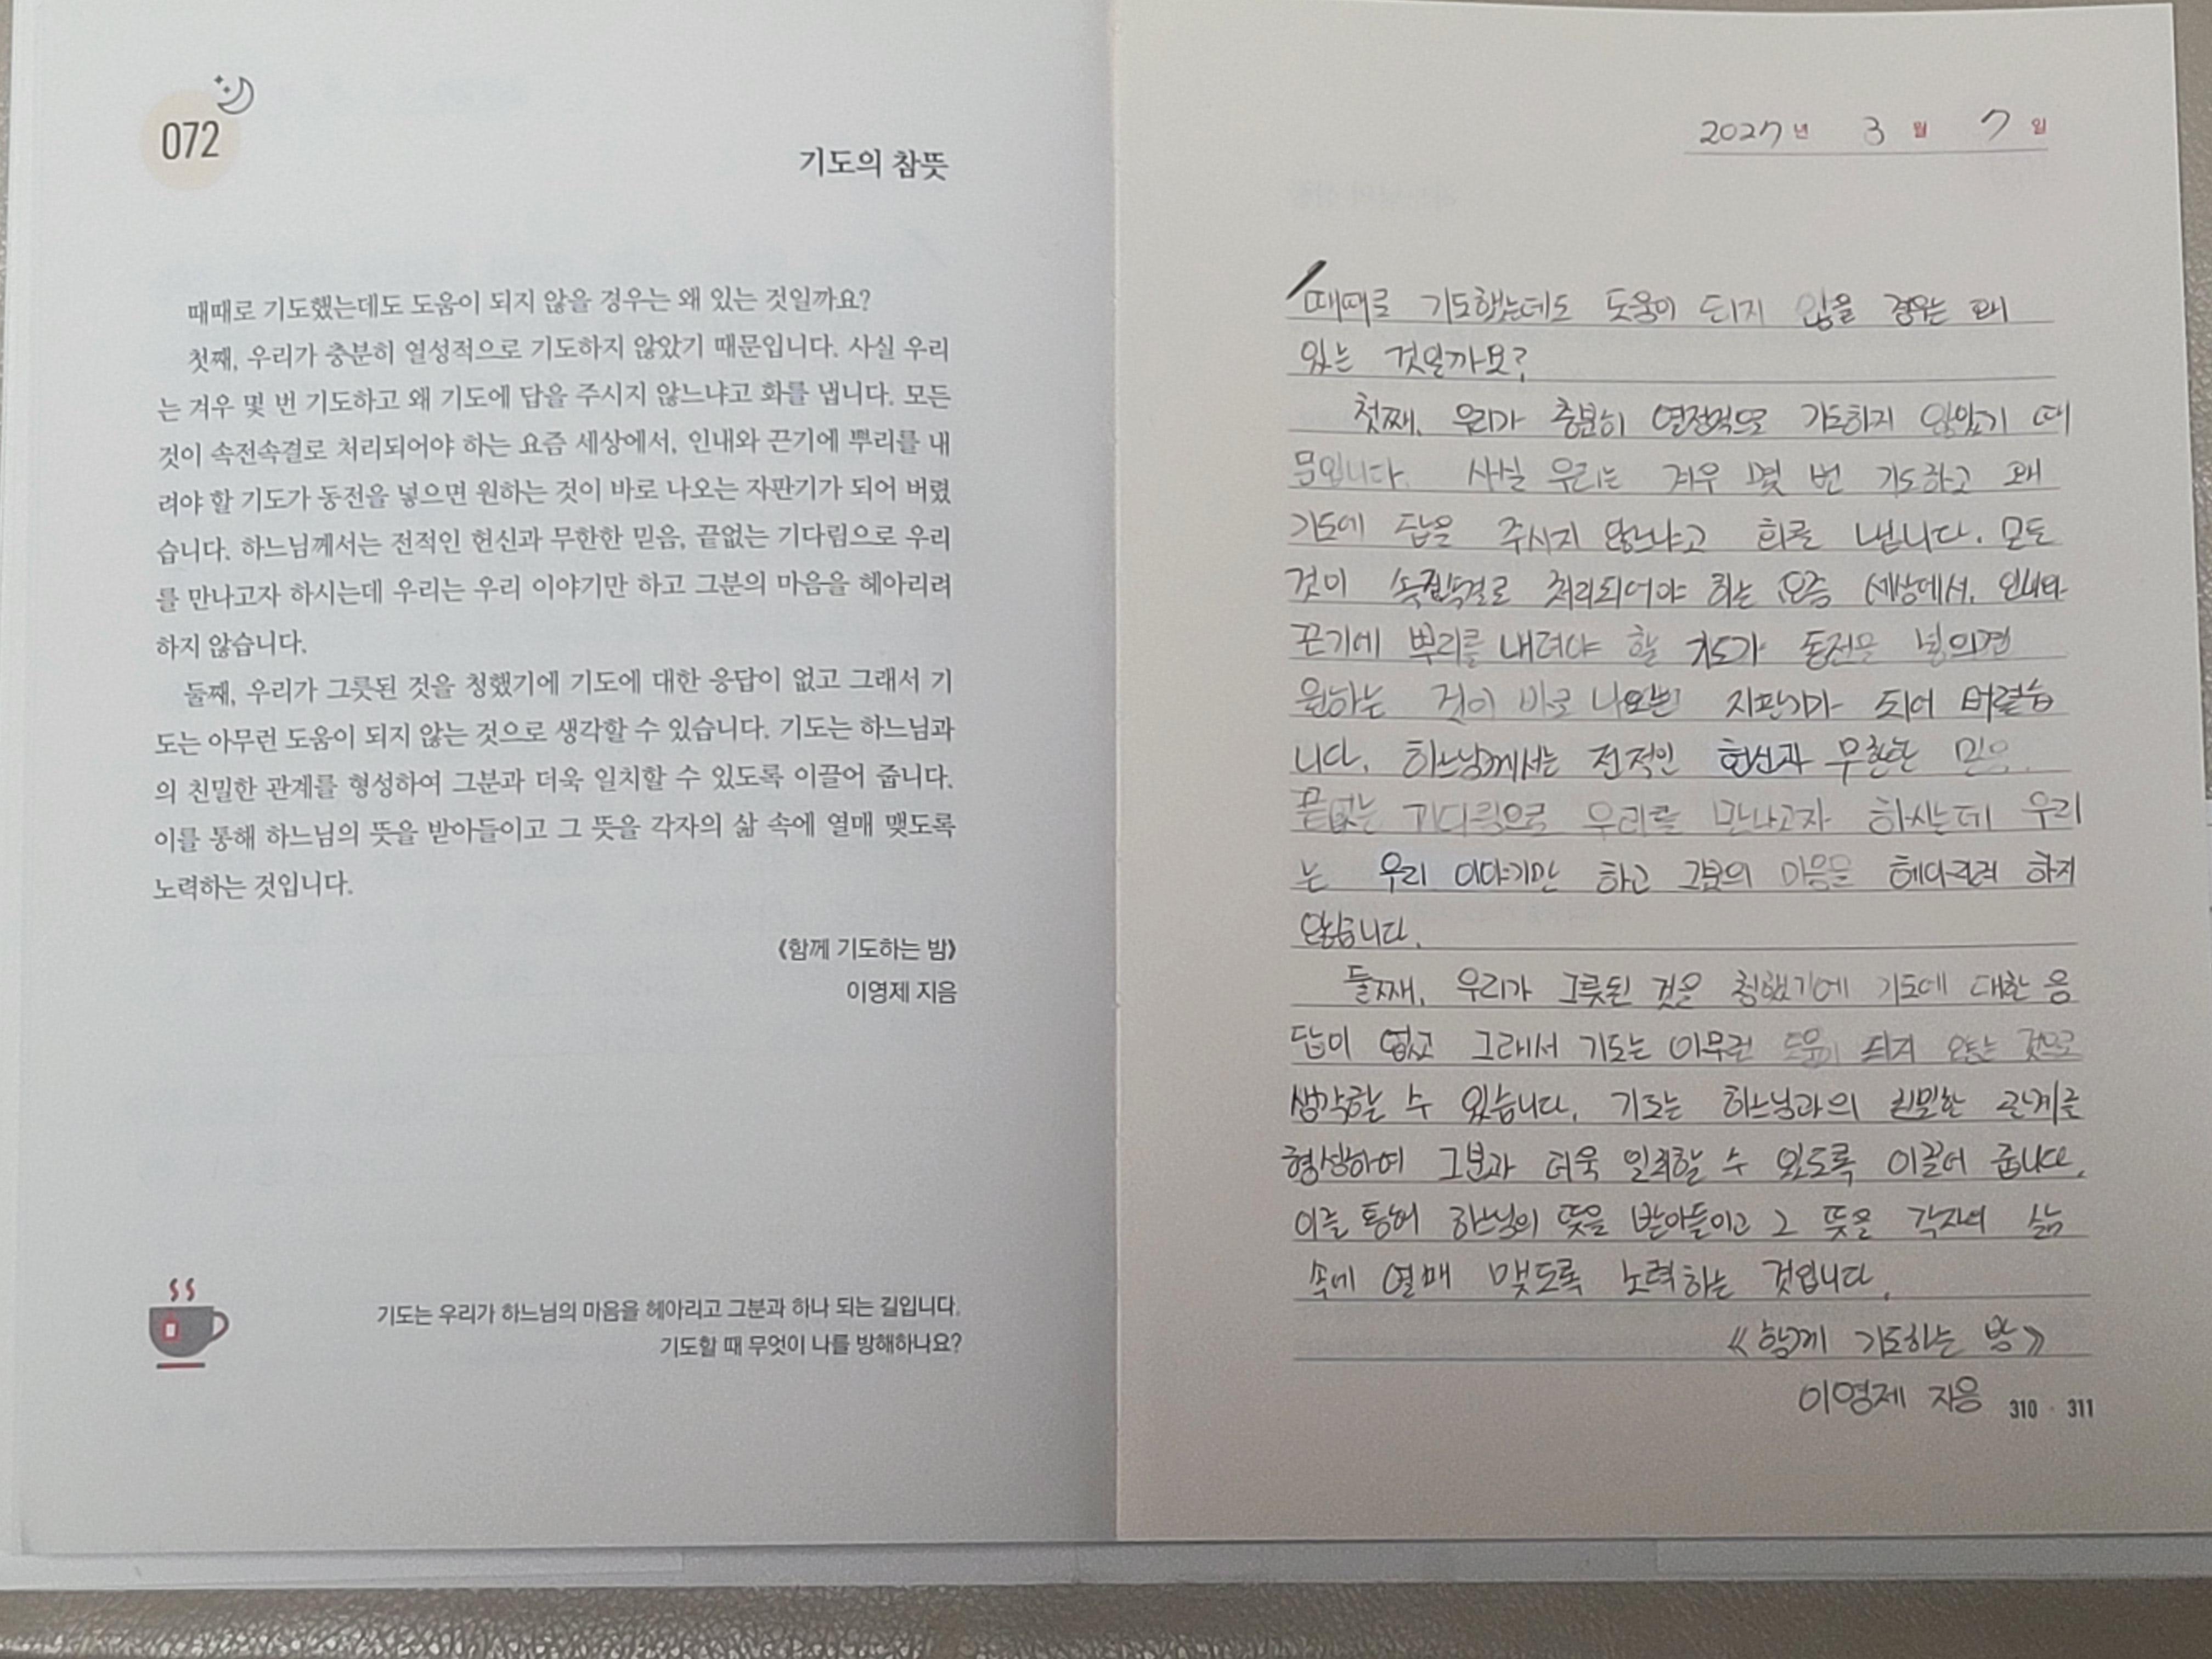 072
기도의 참뜻
때때로 기도했는데도 도움이 되지 않을 경우는 왜 있는 것일까요?
첫째, 우리가 충분히 열성적으로 기도하지 않았기 때문입니다. 사실 우리
는 겨우 몇 번 기도하고 왜 기도에 답을 주시지 않느냐고 화를 냅니다. 모든
것이 속전속결로 처리되어야 하는 요즘 세상에서, 인내와 끈기에 뿌리를 내
려야 할 기도가 동전을 넣으면 원하는 것이 바로 나오는 자판기가 되어 버렸
습니다. 하느님께서는 전적인 헌신과 무한한 믿음, 끝없는 기다림으로 우리
를 만나고자 하시는데 우리는 우리 이야기만 하고 그분의 마음을 헤아리려
하지 않습니다.
둘째, 우리가 그릇된 것을 청했기에 기도에 대한 응답이 없고 그래서 기
도는 아무런 도움이 되지 않는 것으로 생각할 수 있습니다. 기도는 하느님과
의 친밀한 관계를 형성하여 그분과 더욱 일치할 수 있도록 이끌어 줍니다.
이를 통해 하느님의 뜻을 받아들이고 그 뜻을 각자의 삶 속에 열매 맺도록
노력하는 것입니다.
《함께 기도하는 밤》
이영제 지음
기도는 우리가 하느님의 마음을 헤아리고 그분과 하나 되는 길입니다.
기도할 때 무엇이 나를 방해하나요?
2027년 3월 7일
때때로 기도했는데도 도움이 되지 않을 경우는 왜
있는 것일까요?
첫째, 우리가 충분히 열정적으로 기도하지 않았기 때
문입니다. 사실 우리는 겨우 몇 번 기도하고 왜
기도에 답을 주시지 않느냐고 화를 냅니다. 모든
것이 속전속결로 처리되어야 하는 요즘 세상에서, 인내와
끈기에 뿌리를 내려야 할 기도가 동전을 넣으면
원하는 것이 바로 나오는 자판기가 되어 버렸습
니다. 하느님께서는 전적인 헌신과 무한한 믿음
끝없는 기다림으로 우리를 만나고자 하시는데 우리
는 우리 이야기만 하고 그분의 마음을 헤아리려 하지
않습니다.
둘째, 우리가 그릇된 것을 청했기에 기도에 대한 응
답이 없고 그래서 기도는 아무런 도움이 되지 않는 것으로
생각할 수 있습니다. 기도는 하느님과의 친밀한 관계를
형성하여 그분과 더욱 일치할 수 있도록 이끌어 줍니다.
이를 통해 하느님의 뜻을 받아들이고 그 뜻을 각자의 삶
속에 열매 맺도록 노력하는 것입니다.
《함께 기도하는 밤》
이영제 지음
310 · 311